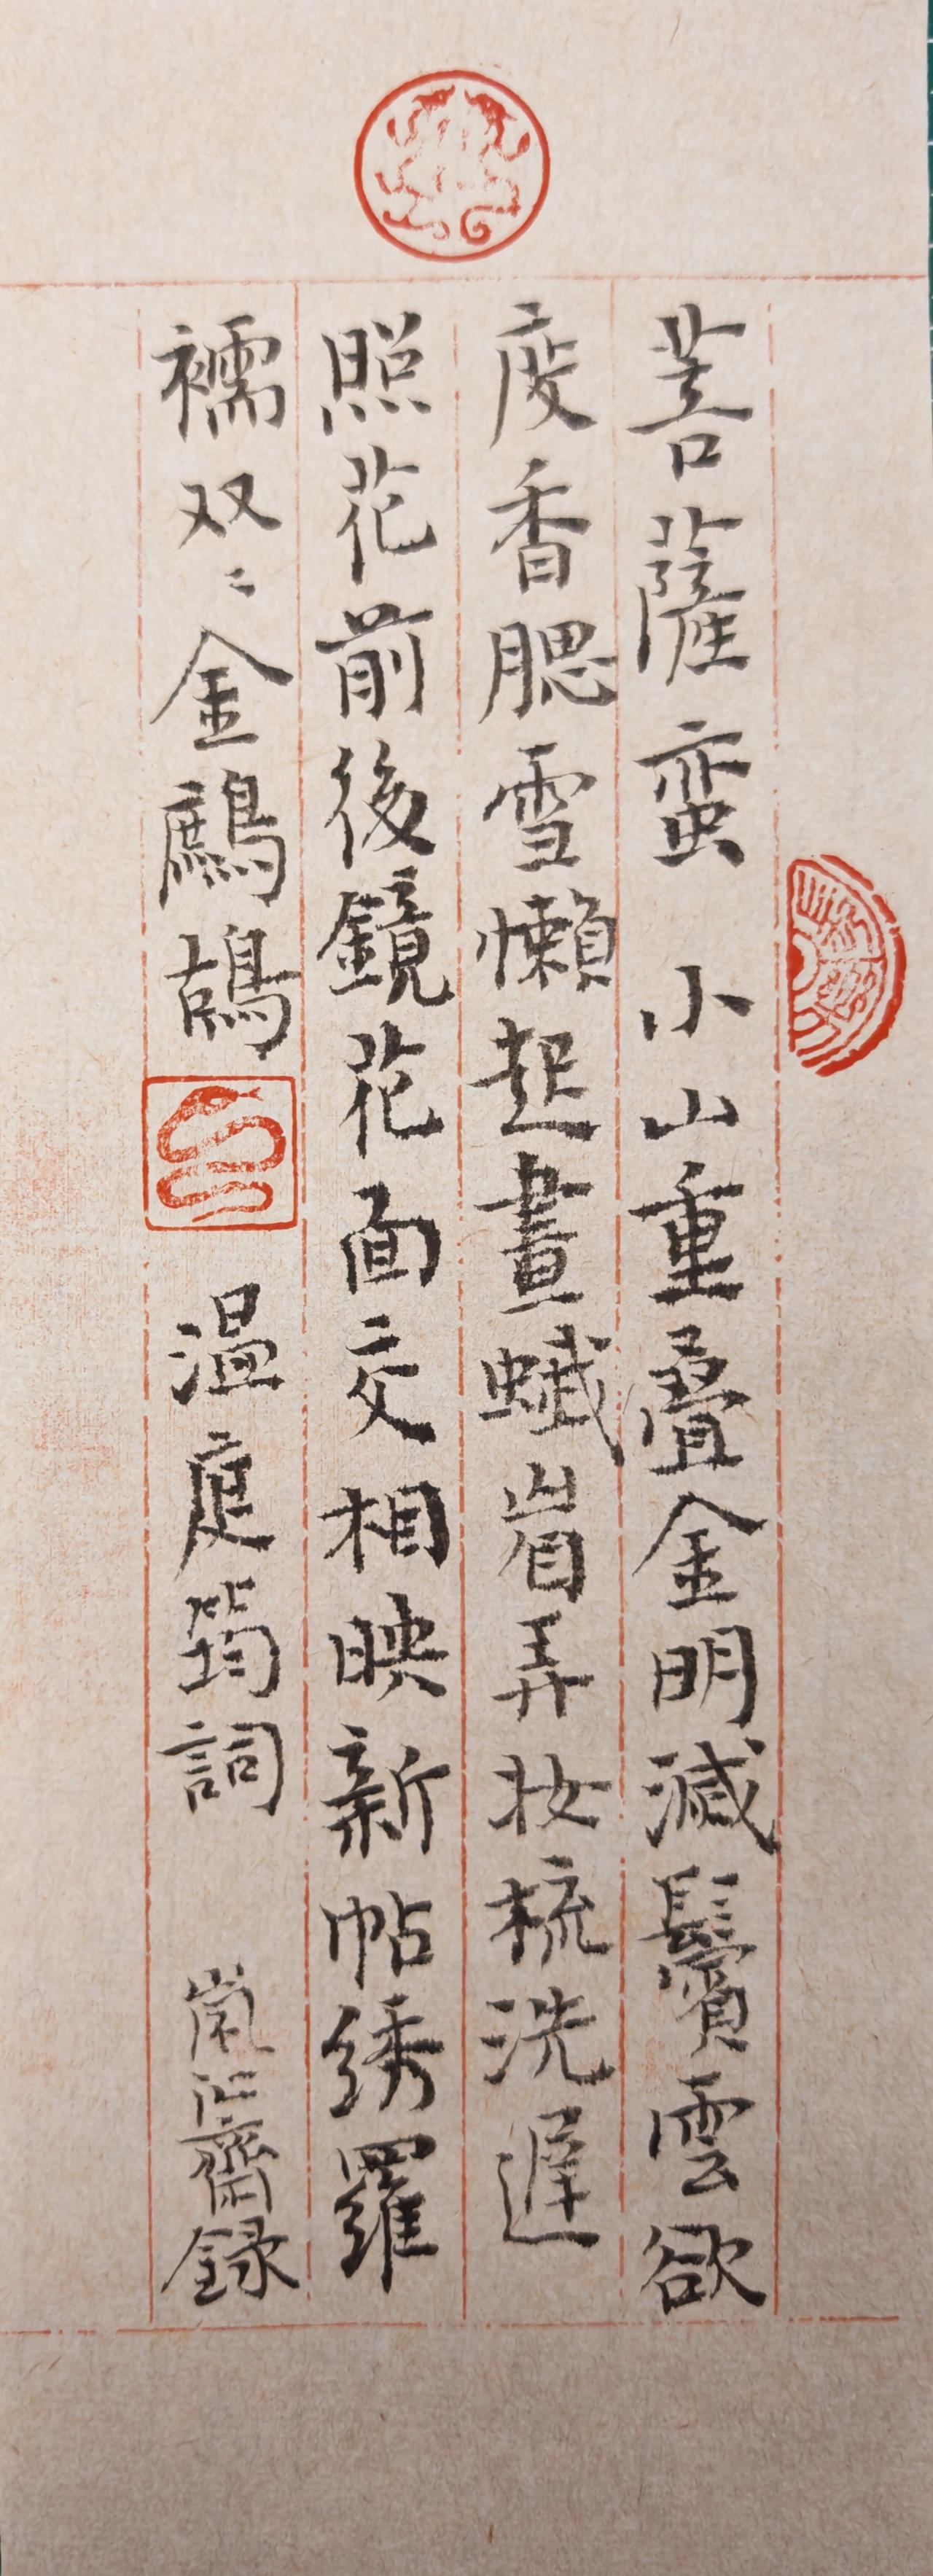 菩薩蛮 小山重疊金明滅鬢雲欲
度香腮雪懶起畫蛾眉弄妝梳洗遲
照花前後鏡花面交相映新帖绣羅
襦双〻金鷓鴣 温庭筠詞 齋録